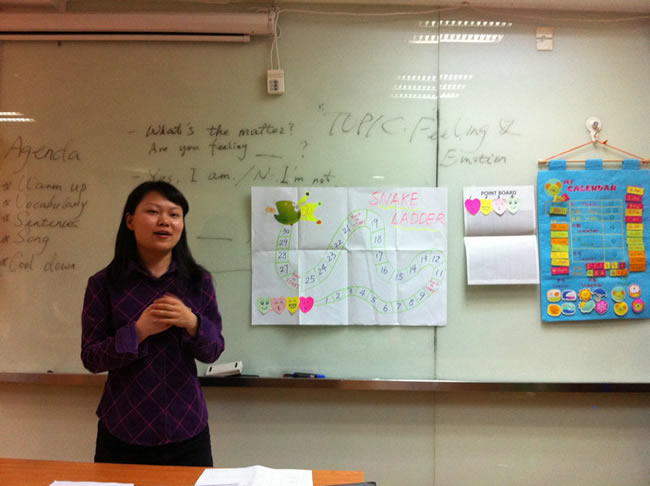 Agenda
Warm up
Vocabulary
Sentences
Song
Cool down
- What's the matter?
Are you feeling ___ ?
- Yes, I am. / N I'm not.
TOPIC: Feeling &
Emotion
SNAKE
LADDER
30
29
28
27
25
24
23
22
21
19
18
17
16
15
14
13
12
11
9
8
7
6
5
4
3
2
1
POINT BOARD
MY
CALENDAR